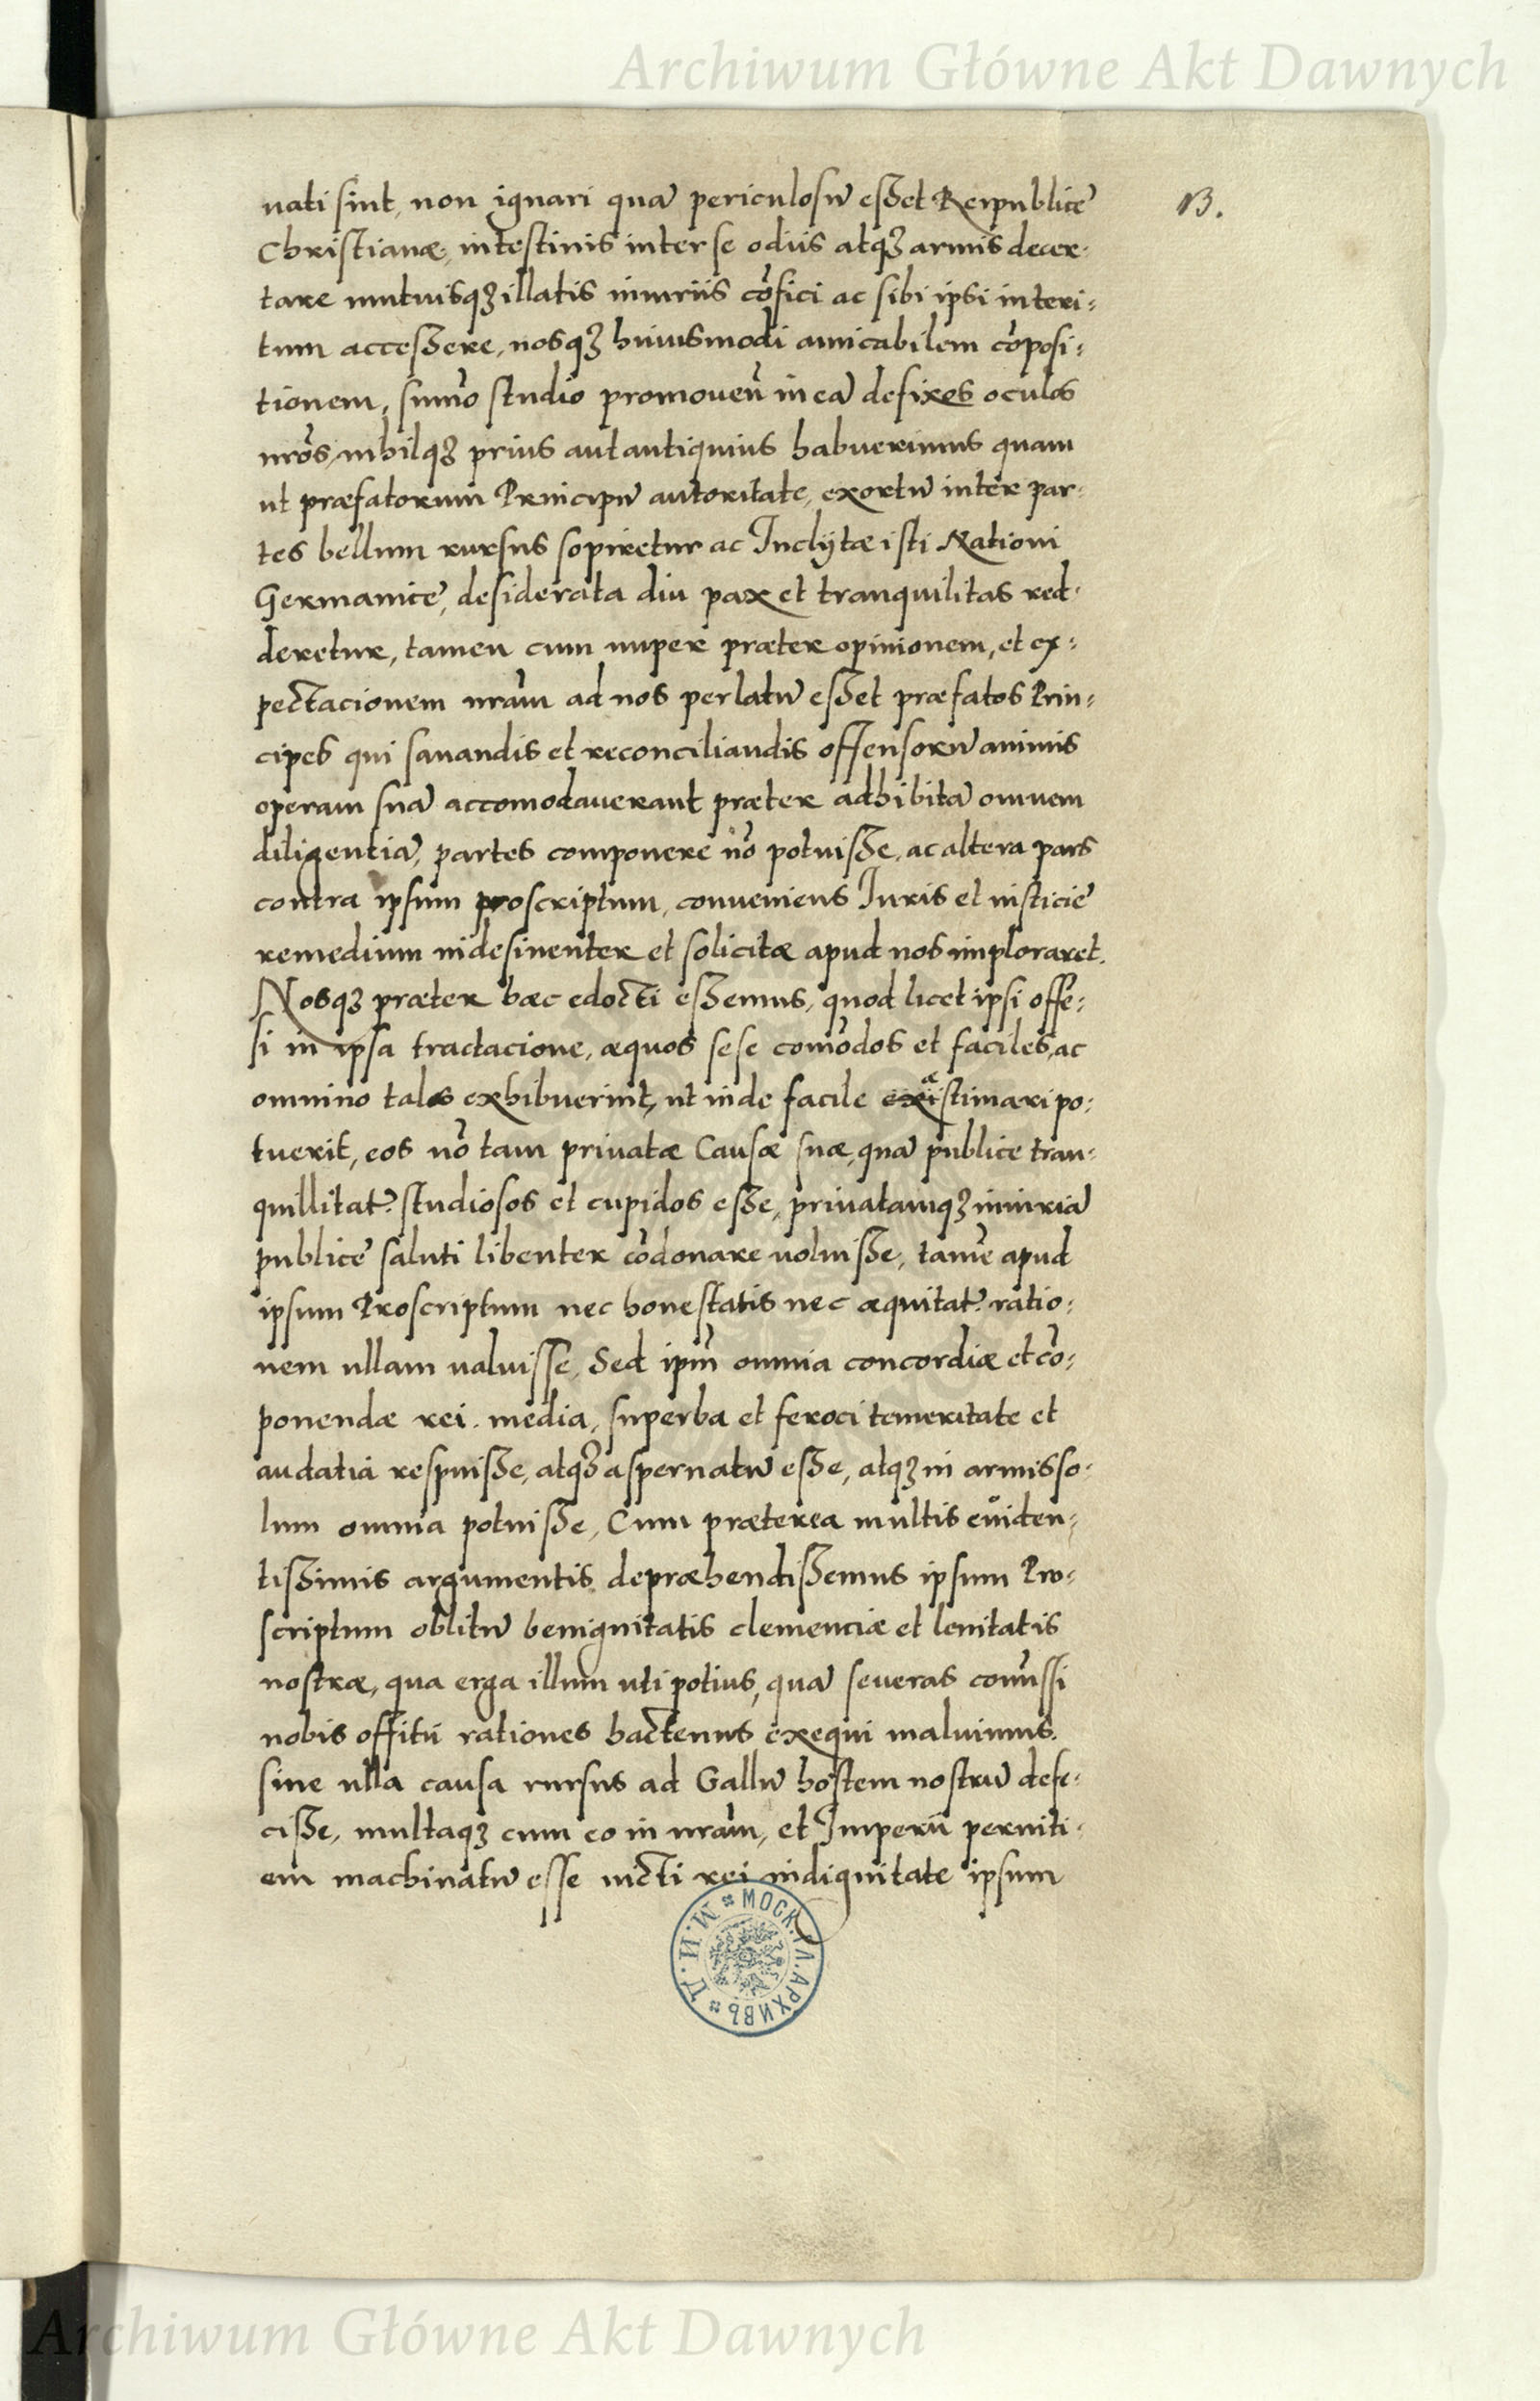 Archiwum Główne Akt Dawnych
B.
nati sint, non ignari quã periculosũ esset Reipublice
Christianæ, intestinis inter se odiis atq3 armis decer-
tare mutuisq3 illatis iniuriis cõfici ac sibi ipsi interi-
tum accessere, nosq3 huiusmodi amicabilem cõposi-
tionem, sum̃o studio promouen̄ in eã defixos oculos
nrõs, nihilq3 prius aut antiquius habuerimus quam
ut præfatorum Principũ autoritate, exortũ inter par-
tes bellum rursus sopiretur ac Inclytæ isti Nationi
Germanice, desiderata diu pax et tranquilitas red-
deretur, tamen cum nuper præter opinionem, et ex-
pectacionem nrãm ad nos perlatũ esset præfatos Prin-
cipes qui sanandis et reconciliandis offensorũ animis
operam suã accomodauerant præter adhibitã omnem
diligentiã, partes componere nõ potuisse, ac altera pars
contra ipsum proscriptum, conueniens Iuris et iusticie
remedium indesinenter et solicitæ apud nos imploraret.
Nosq3 præter hæc edocti essemus, quod licet ipsi offe-
si in ipsa tractacione, æquos sese com̃odos et faciles, ac
omnino tales exhibuerint, ut inde facile exiæstimari po-
tuerit, eos nõ tam priuatæ Causæ suæ, quã publice tran-
quillitat? studiosos et cupidos esse, priuatamq3 iniuriã
publice saluti libenter cõdonare uoluisse, tamẽ apud
ipsum Proscriptum nec honestatis nec æquitat? ratio-
nem ullam ualuisse, Sed ipm̃ omnia concordiæ et cõ-
ponendæ rei media, superba et feroci temeritate et
audatia respuisse, atq3 aspernatũ esse, atq3 in armis so-
lum omnia potuisse, Cum præterea multis euiden-
tissimis argumentis depræhendissemus ipsum Pro-
scriptum oblitũ benignitatis clemenciæ et lenitatis
nostræ, qua erga illum uti potius, quã seueras com̃issi
nobis offitii rationes hactenus exequi maluimus.
sine ulla causa rursus ad Gallũ hostem nostrũ defe-
cisse, multaq3 cum eo in nrãm, et Imperii perniti-
em machinatũ esse uicti rei indignitate ipsum
МОСК. ГЛ. АРХИВЪ * М. И. Д. *
Archiwum Główne Akt Dawnych